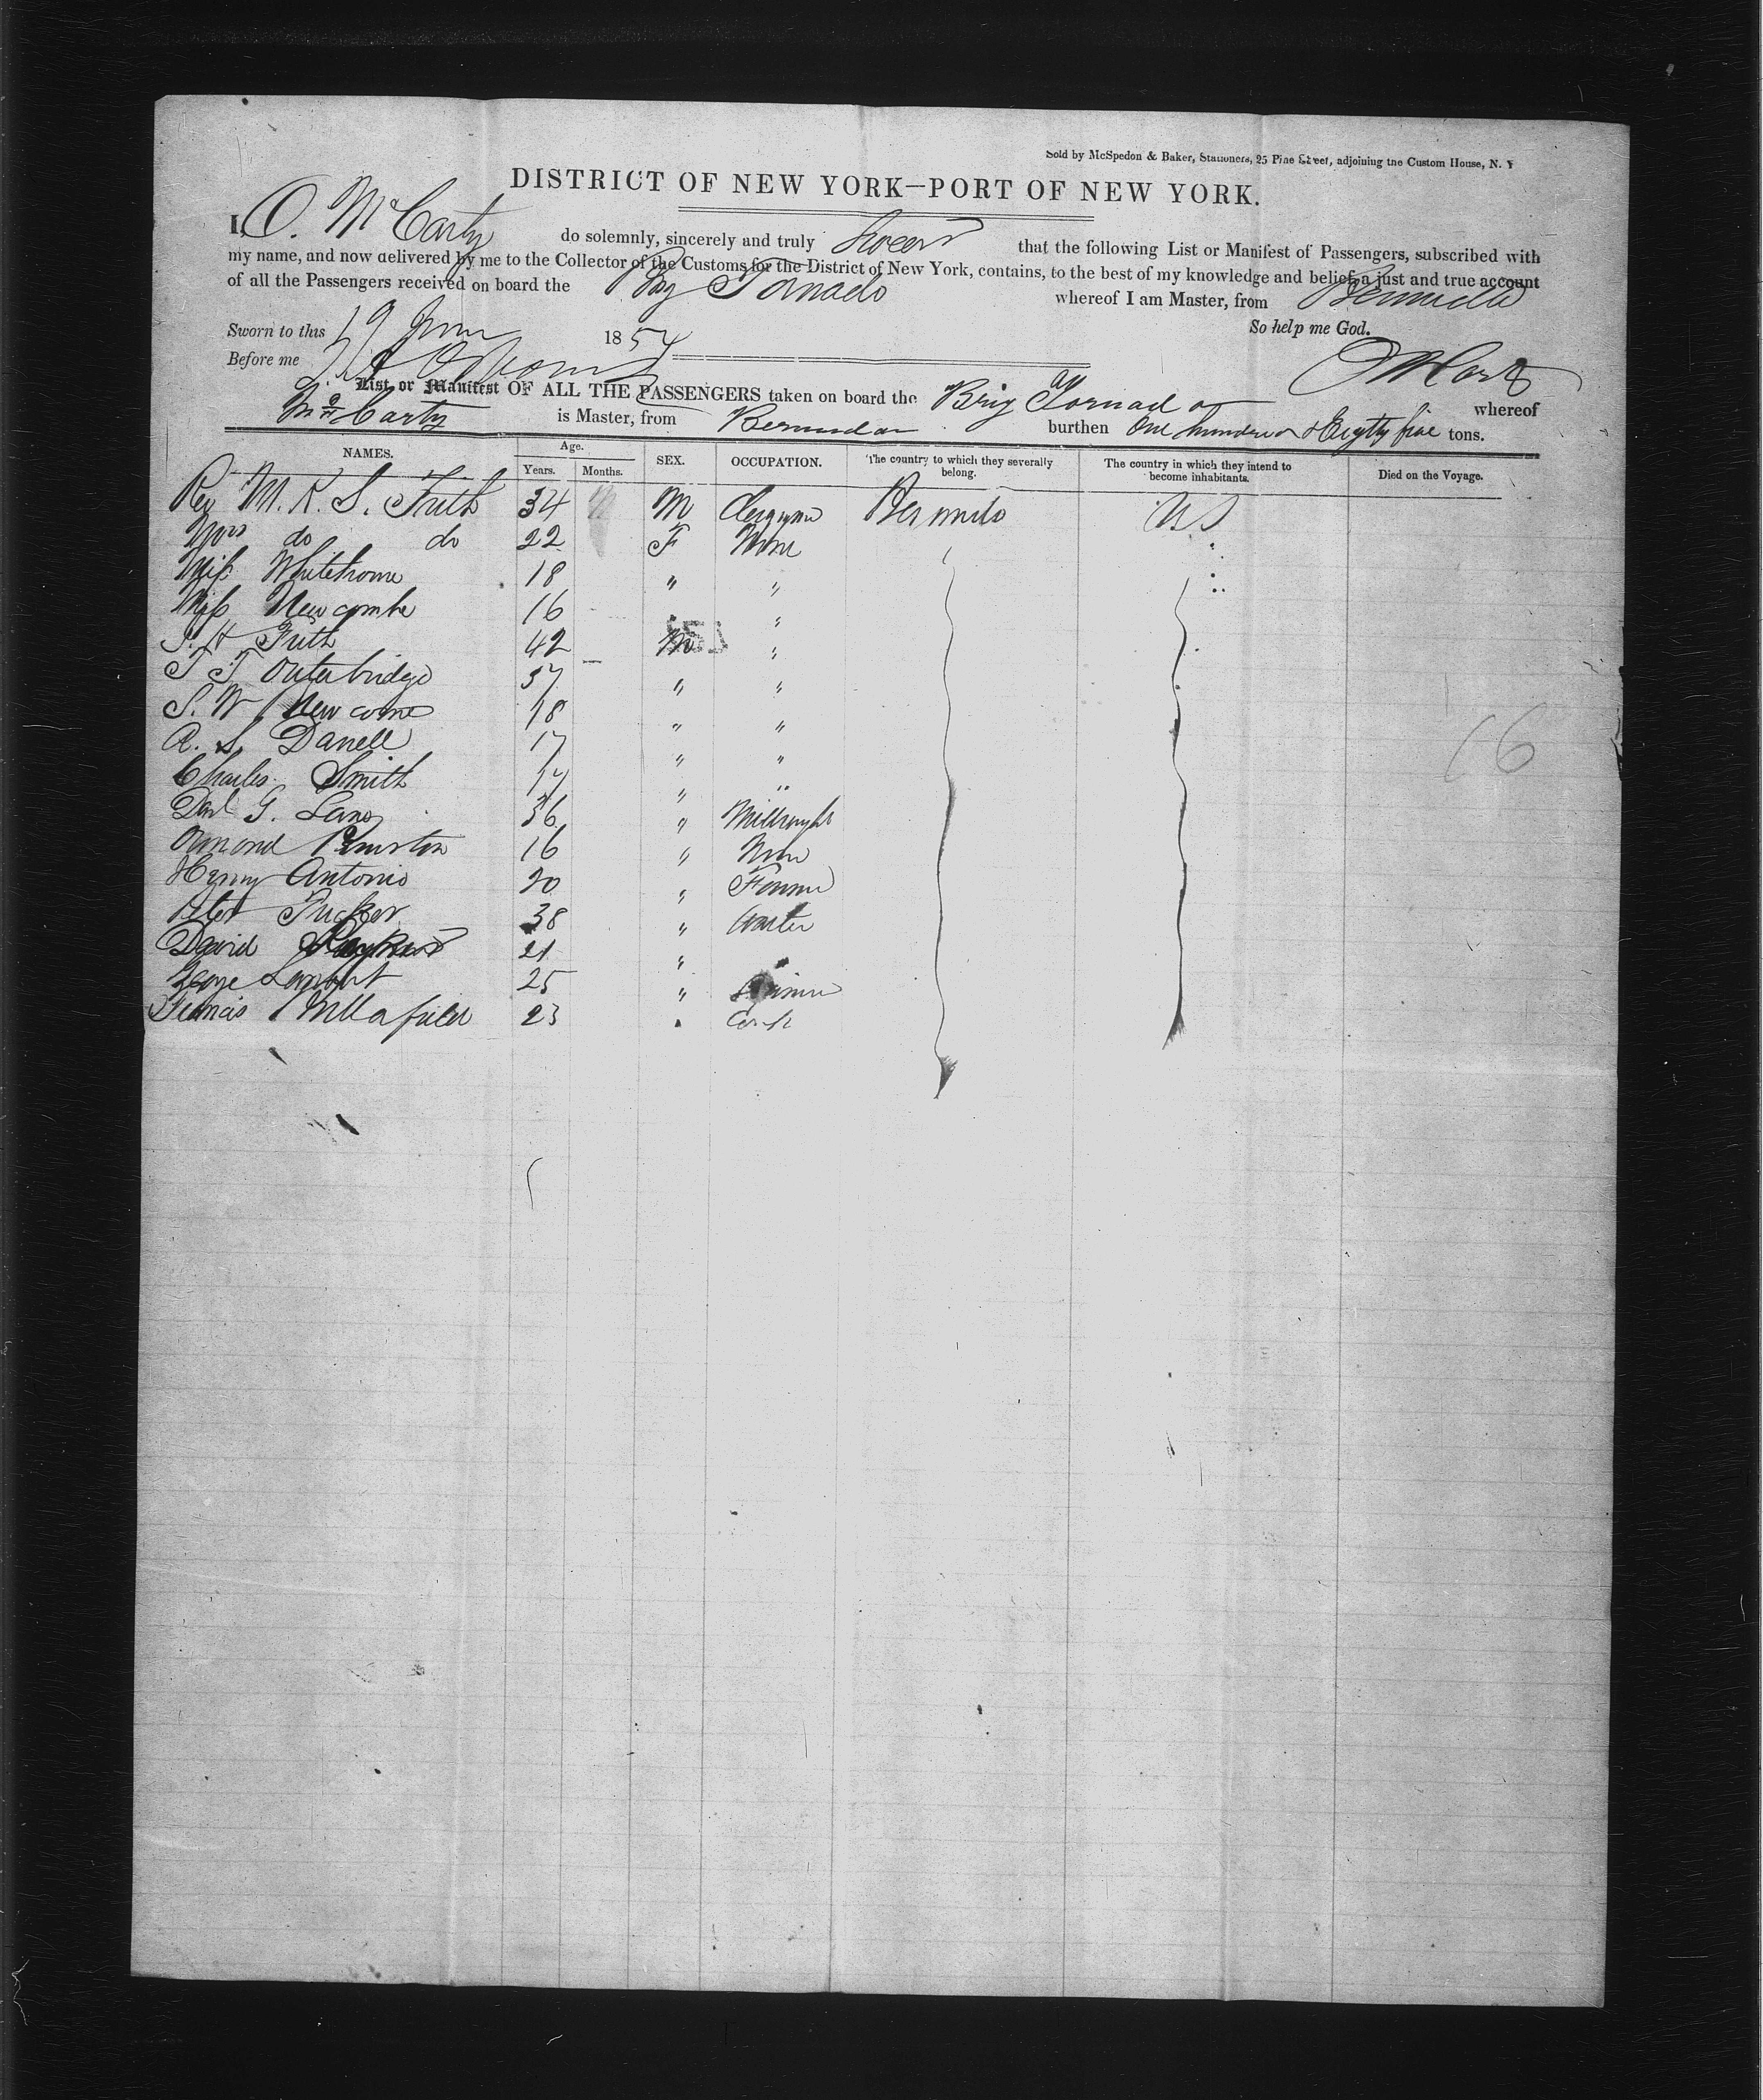 Sold by McSpedon & Baker, Stationers, 25 Pine Street, adjoining the Custom House, N. Y
DISTRICT OF NEW YORK—PORT OF NEW YORK.
I, O. McCarty do solemnly, sincerely and truly Swear that the following List or Manifest of Passengers, subscribed with
my name, and now delivered by me to the Collector of the Customs for the District of New York, contains, to the best of my knowledge and belief, a just and true account
of all the Passengers received on board the Brig Tornado whereof I am Master, from Bermuda
Sworn to this 19 June 1854 So help me God.
Before me
O McCarty
List or Manifest OF ALL THE PASSENGERS taken on board the Brig Tornado whereof
McCarty is Master, from Bermuda burthen One hundred & Eighty five tons.
NAMES. Age. Years. Months. SEX. OCCUPATION. The country to which they severally belong. The country in which they intend to become inhabitants. Died on the Voyage.
Rev M. K. S. Frith 34 M Clergyman Bermuda US
Mrs do do 22 F None
Miss Whitehorne 18 " "
Miss Newcombe 16 "
J. H Frith 42 M "
T T Outerbridge 37 " "
S. W Newcome 18 " "
A. S. Darrell 17 " "
Charles Smith 17 " "
Danl G. Lane 36 " Millwright
Ormond Peniston 16 " None
Henry Antonio 20 "
Peter Tucker 38 "
David 21 "
George Lambert 25 "
Francis 23 " Cook
16